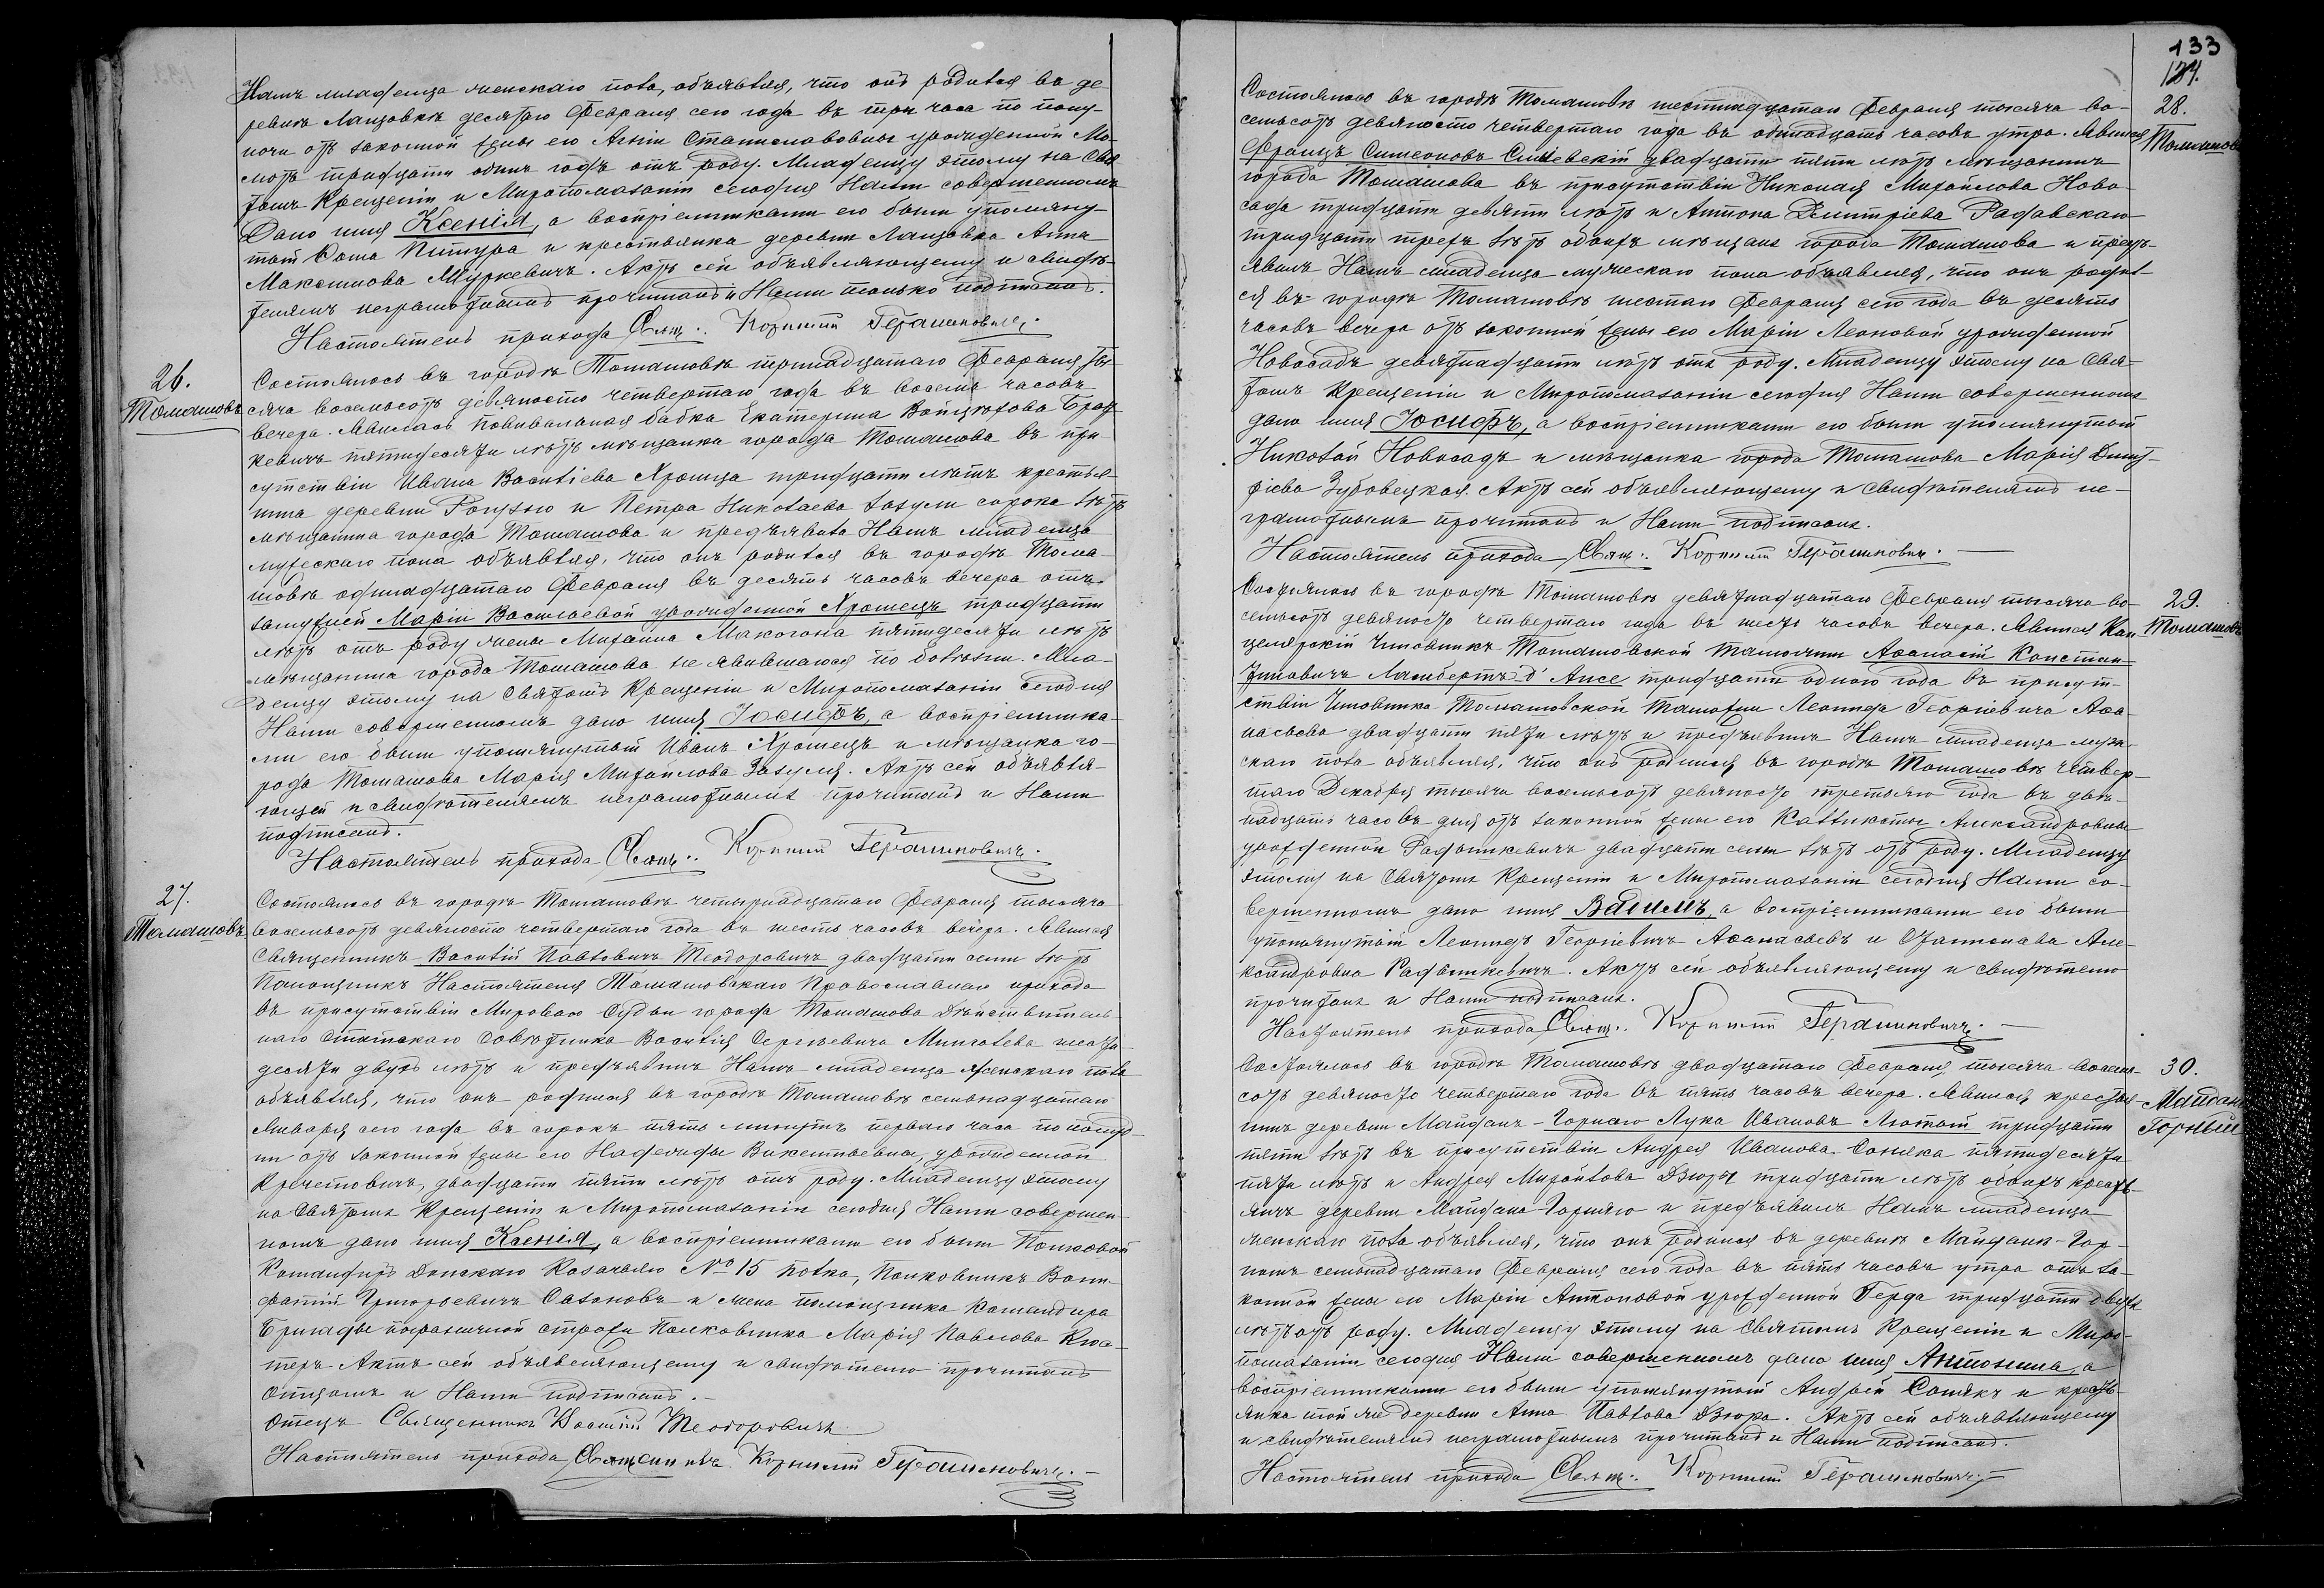 Намъ младенца женскаго пола, объявляя, что онъ родился въ де-
ревнѣ Лащовкѣ десятаго Февраля сего года въ три часа по полу-
ночи отъ законной жены его Анны Станиславовны урожденной
лѣтъ тридцати одинъ годъ отъ роду. Младенцу этому на Свя-
томъ Крещеніи и Миропомазаніи сегодня Нами совершенномъ
Дано имя Ксенія, а воспріемниками его были упомяну-
тый Фома Питура и крестьянка деревни Лащовка Анна
Максимова Муркевичъ. Актъ сей объявляющему и свидѣ-
телямъ неграмотнымъ прочитанъ и Нами только подписанъ.
Настоятель прихода Свящ. Корнилій Герашиновичъ.
26.
Томашовъ
Состоялось въ городѣ Томашовѣ тринадцатаго Февраля ты-
сяча восемьсотъ девяносто четвертаго года въ восемь часовъ
вечера. Явилась повивальная бабка Екатерина Войцѣхова Брод-
кевичъ пятидесяти лѣтъ мѣщанка города Томашова въ при-
сутствіи Ивана Васильева Хромца тридцати лѣтъ крестья-
нина деревни Рогузно и Петра Николаева Зазули сорока лѣтъ
мѣщанина города Томашова и предъявила Намъ младенца
мужескаго пола объявляя, что онъ родился въ городѣ Тома-
шовѣ одинадцатаго Февраля въ десять часовъ вечера отъ
замужней Маріи Васильевой урожденной Хромецъ тридцати
лѣтъ отъ роду жены Михаила Макогона пятидесяти лѣтъ
мѣщанина города Томашова не явившагося по болѣзни. Мла-
денцу этому на Святомъ Крещеніи и Миропомазаніи сегодня
Нами совершенномъ дано имя Іосифъ, а воспріемника-
ми его были упомянутый Иванъ Хромецъ и мѣщанка го-
рода Томашова Марія Михайлова Зазуля. Актъ сей объявля-
ющей и свидѣтелямъ неграмотнымъ прочитанъ и Нами
подписанъ.
Настоятель прихода Свящ. Корнилій Герашиновичъ.
27.
Томашовъ
Состоялось въ городѣ Томашовѣ четырнадцатаго Февраля тысяча
восемьсотъ девяносто четвертаго года въ шесть часовъ вечера. Явился
Священникъ Василій Павловичъ Теодоровичъ двадцати семи лѣтъ
Помощникъ Настоятеля Томашовскаго Православнаго прихода
въ присутствіи Мироваго Судьи города Томашова Дѣйствитель-
наго Статскаго Совѣтника Василія Сергѣевича Мингалева шести-
десяти двухъ лѣтъ и предъявилъ Намъ младенца женскаго пола
объявляя, что онъ родился въ городѣ Томашовѣ семьнадцатаго
Января сего года въ сорокъ пять минутъ перваго часа по полуд-
ни отъ законной жены его Надежды Викентьевны, урожденной
Кречетовичъ, двадцати пяти лѣтъ отъ роду. Младенцу этому
на Святомъ Крещеніи и Миропомазаніи сегодня Нами совершен-
номъ дано имя Ксенія, а воспріемниками его были Полковой
Командиръ Донскаго Казачьяго № 15 полка, Полковникъ Вони-
фатій Григорьевичъ Сазоновъ и жена помощника командира
Бригады пограничной стражи Полковника Марія Павлова Кюс-
теръ Актъ сей объявляющему и свидѣтелю прочитанъ
Отцомъ и Нами подписанъ.
Отецъ Священникъ Василій Теодоровичъ
Настоятель прихода Священникъ Корнилій Герашиновичъ.
133
Состоялось въ городѣ Томашовѣ шестнадцатаго Февраля тысяча во-
семьсотъ девяносто четвертаго года въ одинадцать часовъ утра. Явился
Францъ Симеоновъ двадцати пяти лѣтъ мѣщанинъ
города Томашова въ присутствіи Николая Михайлова Ново-
сада тридцати девяти лѣтъ и Антона Дмитріева Радавскаго
тридцати трехъ лѣтъ обоихъ мѣщанъ города Томашова и предъ-
явилъ Намъ младенца мужескаго пола объявляя, что онъ родил-
ся въ городѣ Томашовѣ шестаго Февраля сего года въ десять
часовъ вечера отъ законной жены его Маріи Леоновой урожденной
Новосадъ девятнадцати лѣтъ отъ роду. Младенцу этому на Свя-
томъ Крещеніи и Миропомазаніи сегодня Нами совершенномъ
дано имя Іосифъ, а воспріемниками его были упомянутый
Николай Новосадъ и мѣщанка города Томашова Марія Дмит-
ріева Зубовецкая. Актъ сей объявляющему и свидѣтелямъ не-
грамотнымъ прочитанъ и Нами подписанъ.
Настоятель прихода Свящ. Корнилій Герашиновичъ.
28.
Томашовъ
Состоялось въ городѣ Томашовѣ девятнадцатаго Февраля тысяча во-
семьсотъ девяносто четвертаго года въ шесть часовъ вечера. Явился Кан-
целярскій Чиновникъ Томашовской Таможни Аѳанасій Констан-
тиновичъ Ламбертъ-д'Ансе тридцати одного года въ присут-
ствіи Чиновника Томашовской Таможни Леонида Георгіевича Аѳа-
насьева двадцати пяти лѣтъ и предъявилъ Намъ младенца муже-
скаго пола объявляя, что онъ родился въ городѣ Томашовѣ четвер-
таго Декабря тысяча восемьсотъ девяносто третьяго года въ две-
надцать часовъ дня отъ законной жены его Каллисты Александровны
урожденной Радзишкевичъ двадцати семи лѣтъ отъ роду. Младенцу
этому на Святомъ Крещеніи и Миропомазаніи сегодня Нами со-
вершенномъ дано имя Вадимъ, а воспріемниками его были
упомянутый Леонидъ Георгіевичъ Аѳанасьевъ и Але-
ксандровна Радзишкевичъ. Актъ сей объявляющему и свидѣтелю
прочитанъ и Нами подписанъ.
Настоятель прихода Свящ. Корнилій Герашиновичъ.
29.
Томашовъ
Состоялось въ городѣ Томашовѣ двадцатаго Февраля тысяча восемь-
сотъ девяносто четвертаго года въ пять часовъ вечера. Явился крестья-
нинъ деревни Майданъ-Горнаго Лука Ивановъ Лютый тридцати
пяти лѣтъ въ присутствіи Андрея Иванова Сомяка пятидесяти
пяти лѣтъ и Андрея Михайлова Дзюры тридцати лѣтъ обоихъ кресть-
янъ деревни Майдана-Горняго и предъявилъ Намъ младенца
женскаго пола объявляя, что онъ родился въ деревнѣ Майданъ-Гор-
номъ семьнадцатаго Февраля сего года въ пять часовъ утра отъ за-
конной жены его Маріи Антоновой урожденной Герда тридцати двухъ
лѣтъ отъ роду. Младенцу этому на Святомъ Крещеніи и Миро-
помазаніи сегодня Нами совершенномъ дано имя Антонина, а
воспріемниками его были упомянутый Андрей Сомякъ и кресть-
янка той же деревни Анна Павлова Дзюра. Актъ сей объявляющему
и свидѣтелямъ неграмотнымъ прочитанъ и Нами подписанъ.
Настоятель прихода Свящ. Корнилій Герашиновичъ
30.
Майданъ
Горный